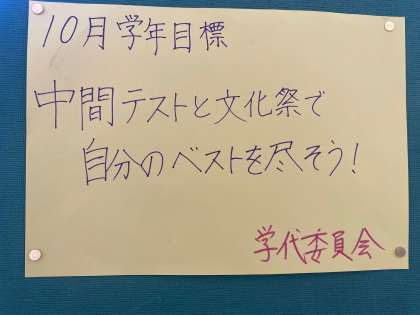 10月学年目標
中間テストと文化祭で
自分のベストを尽そう!
学代委員会